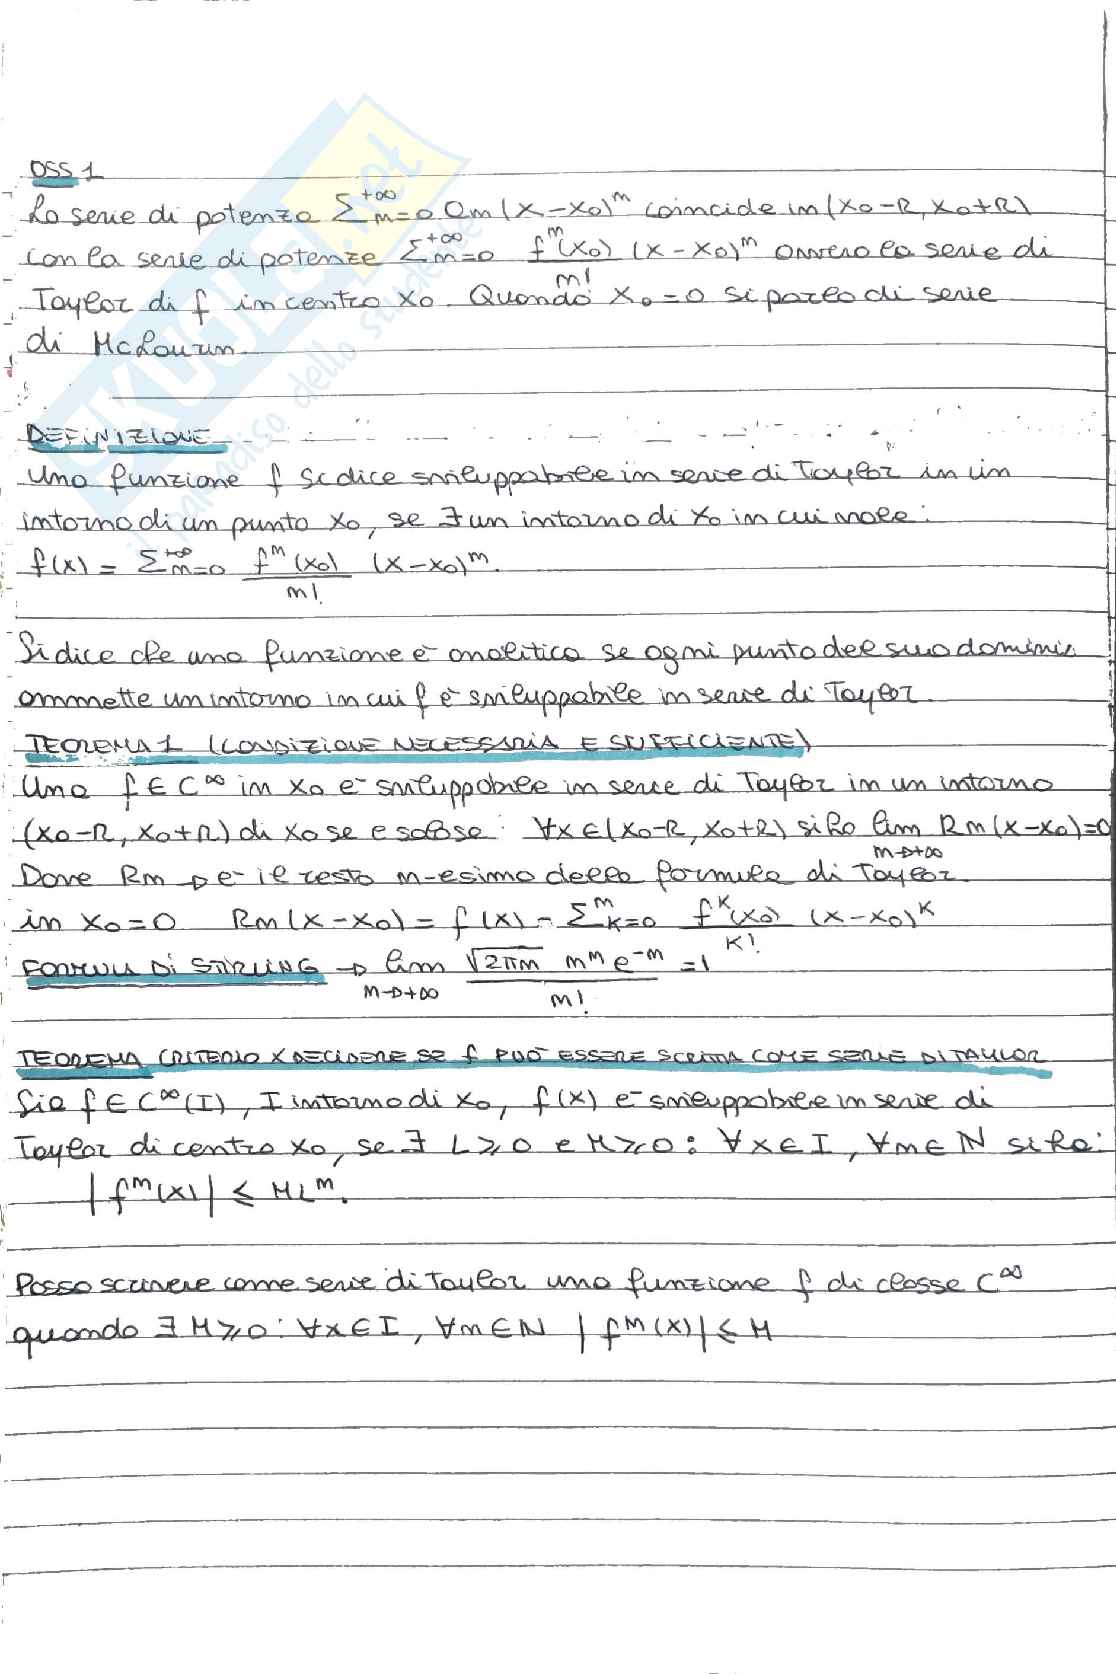 OSS 1
La serie di potenze ∑_{n=0}^{+∞} an (x-x0)^n coincide in (x0-R, x0+R)
con la serie di potenze ∑_{n=0}^{+∞} f^n(x0)/n! (x-x0)^n ovvero la serie di
Taylor di f in centro x0. Quando x0=0 si parla di serie
di McLaurin.
DEFINIZIONE
Una funzione f si dice sviluppabile in serie di Taylor in un
intorno di un punto x0, se ∃ un intorno di x0 in cui vale:
f(x) = ∑_{n=0}^{+∞} f^n(x0)/n! (x-x0)^n.
Si dice che una funzione è analitica se ogni punto del suo dominio
ammette un intorno in cui f è sviluppabile in serie di Taylor.
TEOREMA 1 (CONDIZIONE NECESSARIA E SUFFICIENTE)
Una f ∈ C^∞ in x0 è sviluppabile in serie di Taylor in un intorno
(x0-R, x0+R) di x0 se e solo se: ∀x∈(x0-R, x0+R) si ha lim_{n→+∞} Rn(x-x0)=0
Dove Rn → è il resto n-esimo della formula di Taylor.
in x0=0 Rn(x-x0) = f(x) - ∑_{k=0}^{n} f^k(x0)/k! (x-x0)^k
FORMULA DI STIRLING → lim_{n→+∞} √(2πn) n^n e^{-n} / n! = 1
TEOREMA CRITERIO X DECIDERE SE f PUÒ ESSERE SCRITTA COME SERIE DI TAYLOR
Sia f ∈ C^∞(I), I intorno di x0, f(x) è sviluppabile in serie di
Taylor di centro x0, se ∃ L⩾0 e M⩾0: ∀x∈I, ∀n∈N si ha:
|f^n(x)| ⩽ ML^n.
Posso scrivere come serie di Taylor una funzione f di classe C^∞
quando ∃ M⩾0: ∀x∈I, ∀n∈N |f^n(x)| ⩽ M
SKUOLA.net
il paradiso dello studente